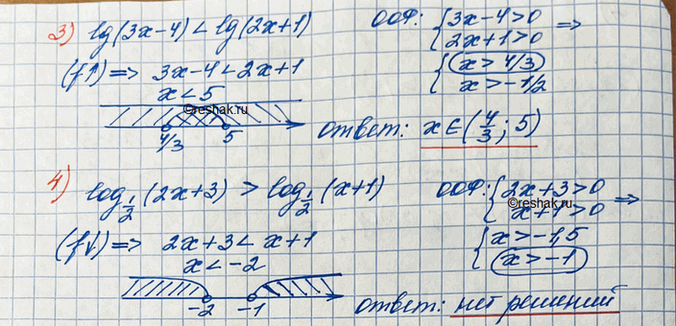 3) lg(3x-4) < lg(2x+1) ООФ: { 3x-4>0 =>
2x+1>0
(f↑) => 3x-4 < 2x+1 { x > 4/3
x < 5 x > -1/2
©reshak.ru
4/3 5 ответ: x∈(4/3; 5)
4) log_{1/2}(2x+3) > log_{1/2}(x+1) ООФ: { 2x+3>0 =>
©reshak.ru
x+1>0
(f↓) => 2x+3 < x+1 { x > -1,5
x < -2 x > -1
-2 -1 ответ: нет решений